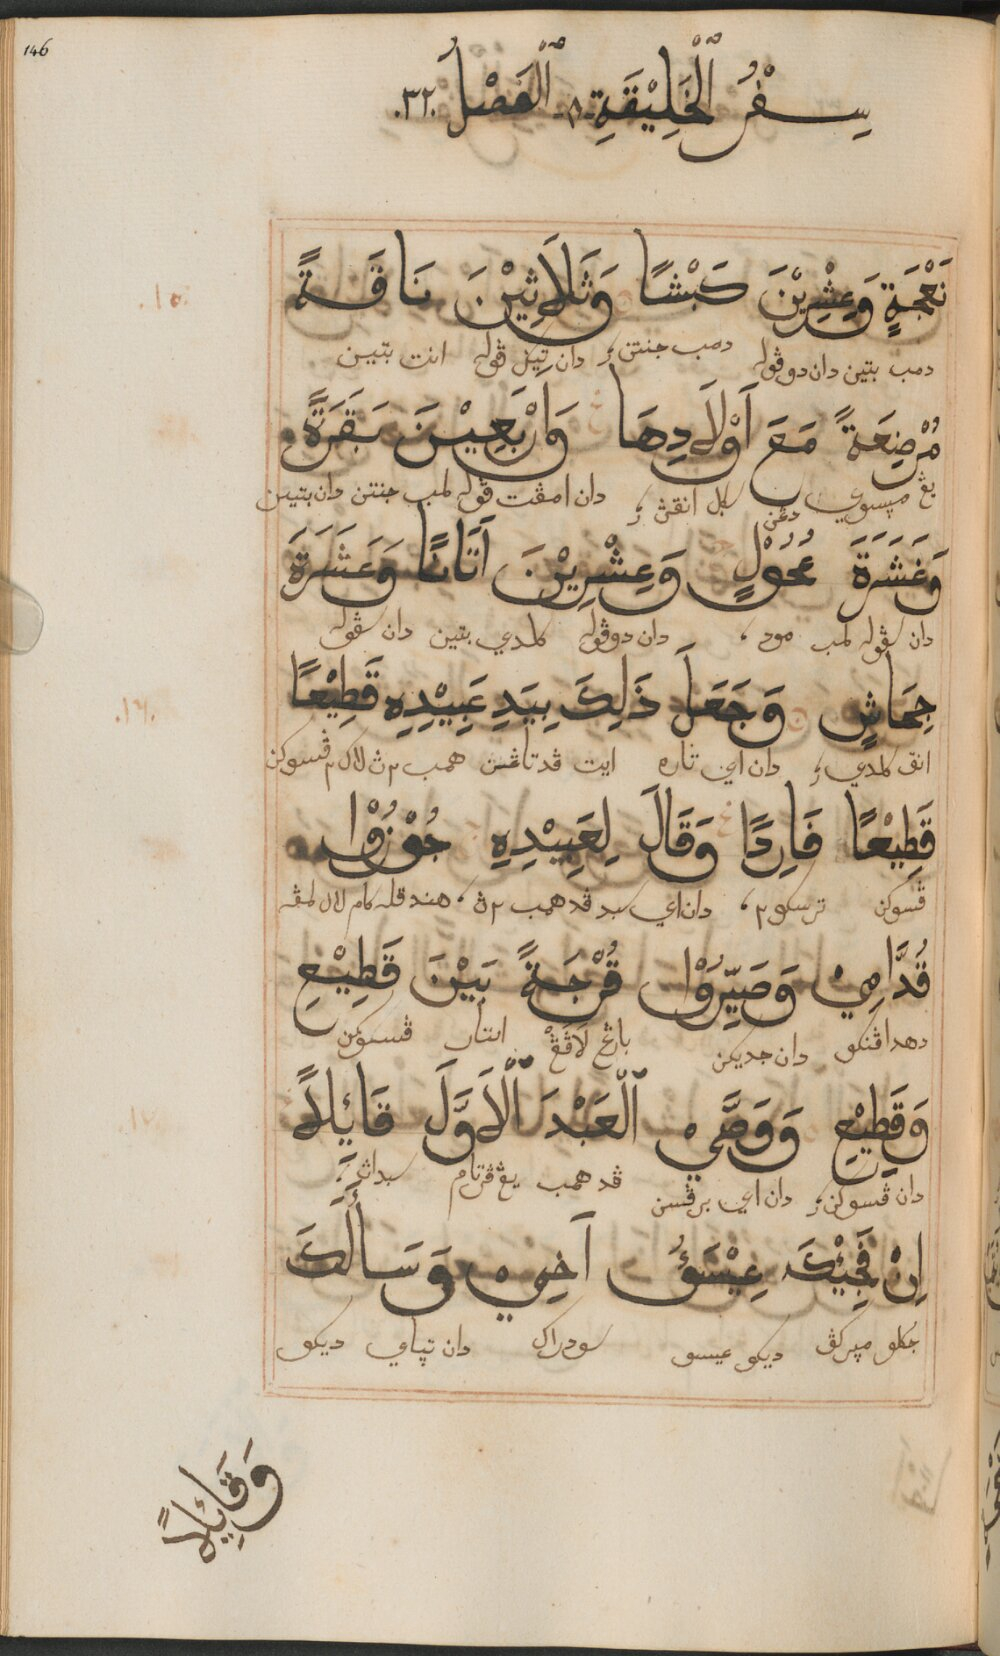 146
سِفْرُ ٱلْخَلِيْقَةِ ٨ ٱلْفَصْلُ ٣٢
نَعْجَةٍ وَعِشْرِيْنَ كَبْشًا وَثَلَاثِيْنَ نَاقَةً
دمب بتين دان دوڤوله دمب جنتن دان تيݢ ڤوله انت بتين
.١٥.
مُرْضِعَةً مَعَ اَوْلَادِهَا وَارْبَعِيْنَ بَقَرَةً
يڠ مپسوي دڠن سکل انقڽ دان امڤت ڤوله لمب جنتن دان بتين
وَعَشَرَةَ عُجُوْلٍ وَعِشْرِيْنَ اَتَانًا وَعَشَرَةَ
دان سڤوله لمب مود دان دوڤوله کلدي بتين دان سڤوله
جِحَاشٍ وَجَعَلَ ذَلِكَ بِيَدِ عَبِيْدِهِ قَطِيْعًا
.١٦.
انق کلدي دان اي تاره ايت ڤد تاڠن همب٢ڽ ڤسوکن
قَطِيْعًا فَارِدًا وَقَالَ لِعَبِيْدِهِ جُوْزُوْا
ڤسوکن ترسکو٢ دان اي سبد ڤد همب٢ڽ هندقله کام لالو
قُدَّامِيْ وَصَيِّرُوْا فُرْجَةً بَيْنَ قَطِيْعِ
دهداڤنکو دان جديکن لاڤڠ انتار ڤسوکن
وَقَطِيْعِ وَوَصَّي ٱلْعَبْدَ ٱلْاَوَّلَ قَايِٕلًا
.١٧.
دان ڤسوکن دان اي برڤسن ڤد همب يڠ ڤرتام سبداڽ
اِنْ فَجِيْكَ عِيْسَوُ اَخِيْ وَسَأَلَكَ
جکلو ديکو عيسو سودراک دان تپاي ديکو
وَقَايِٕلًا